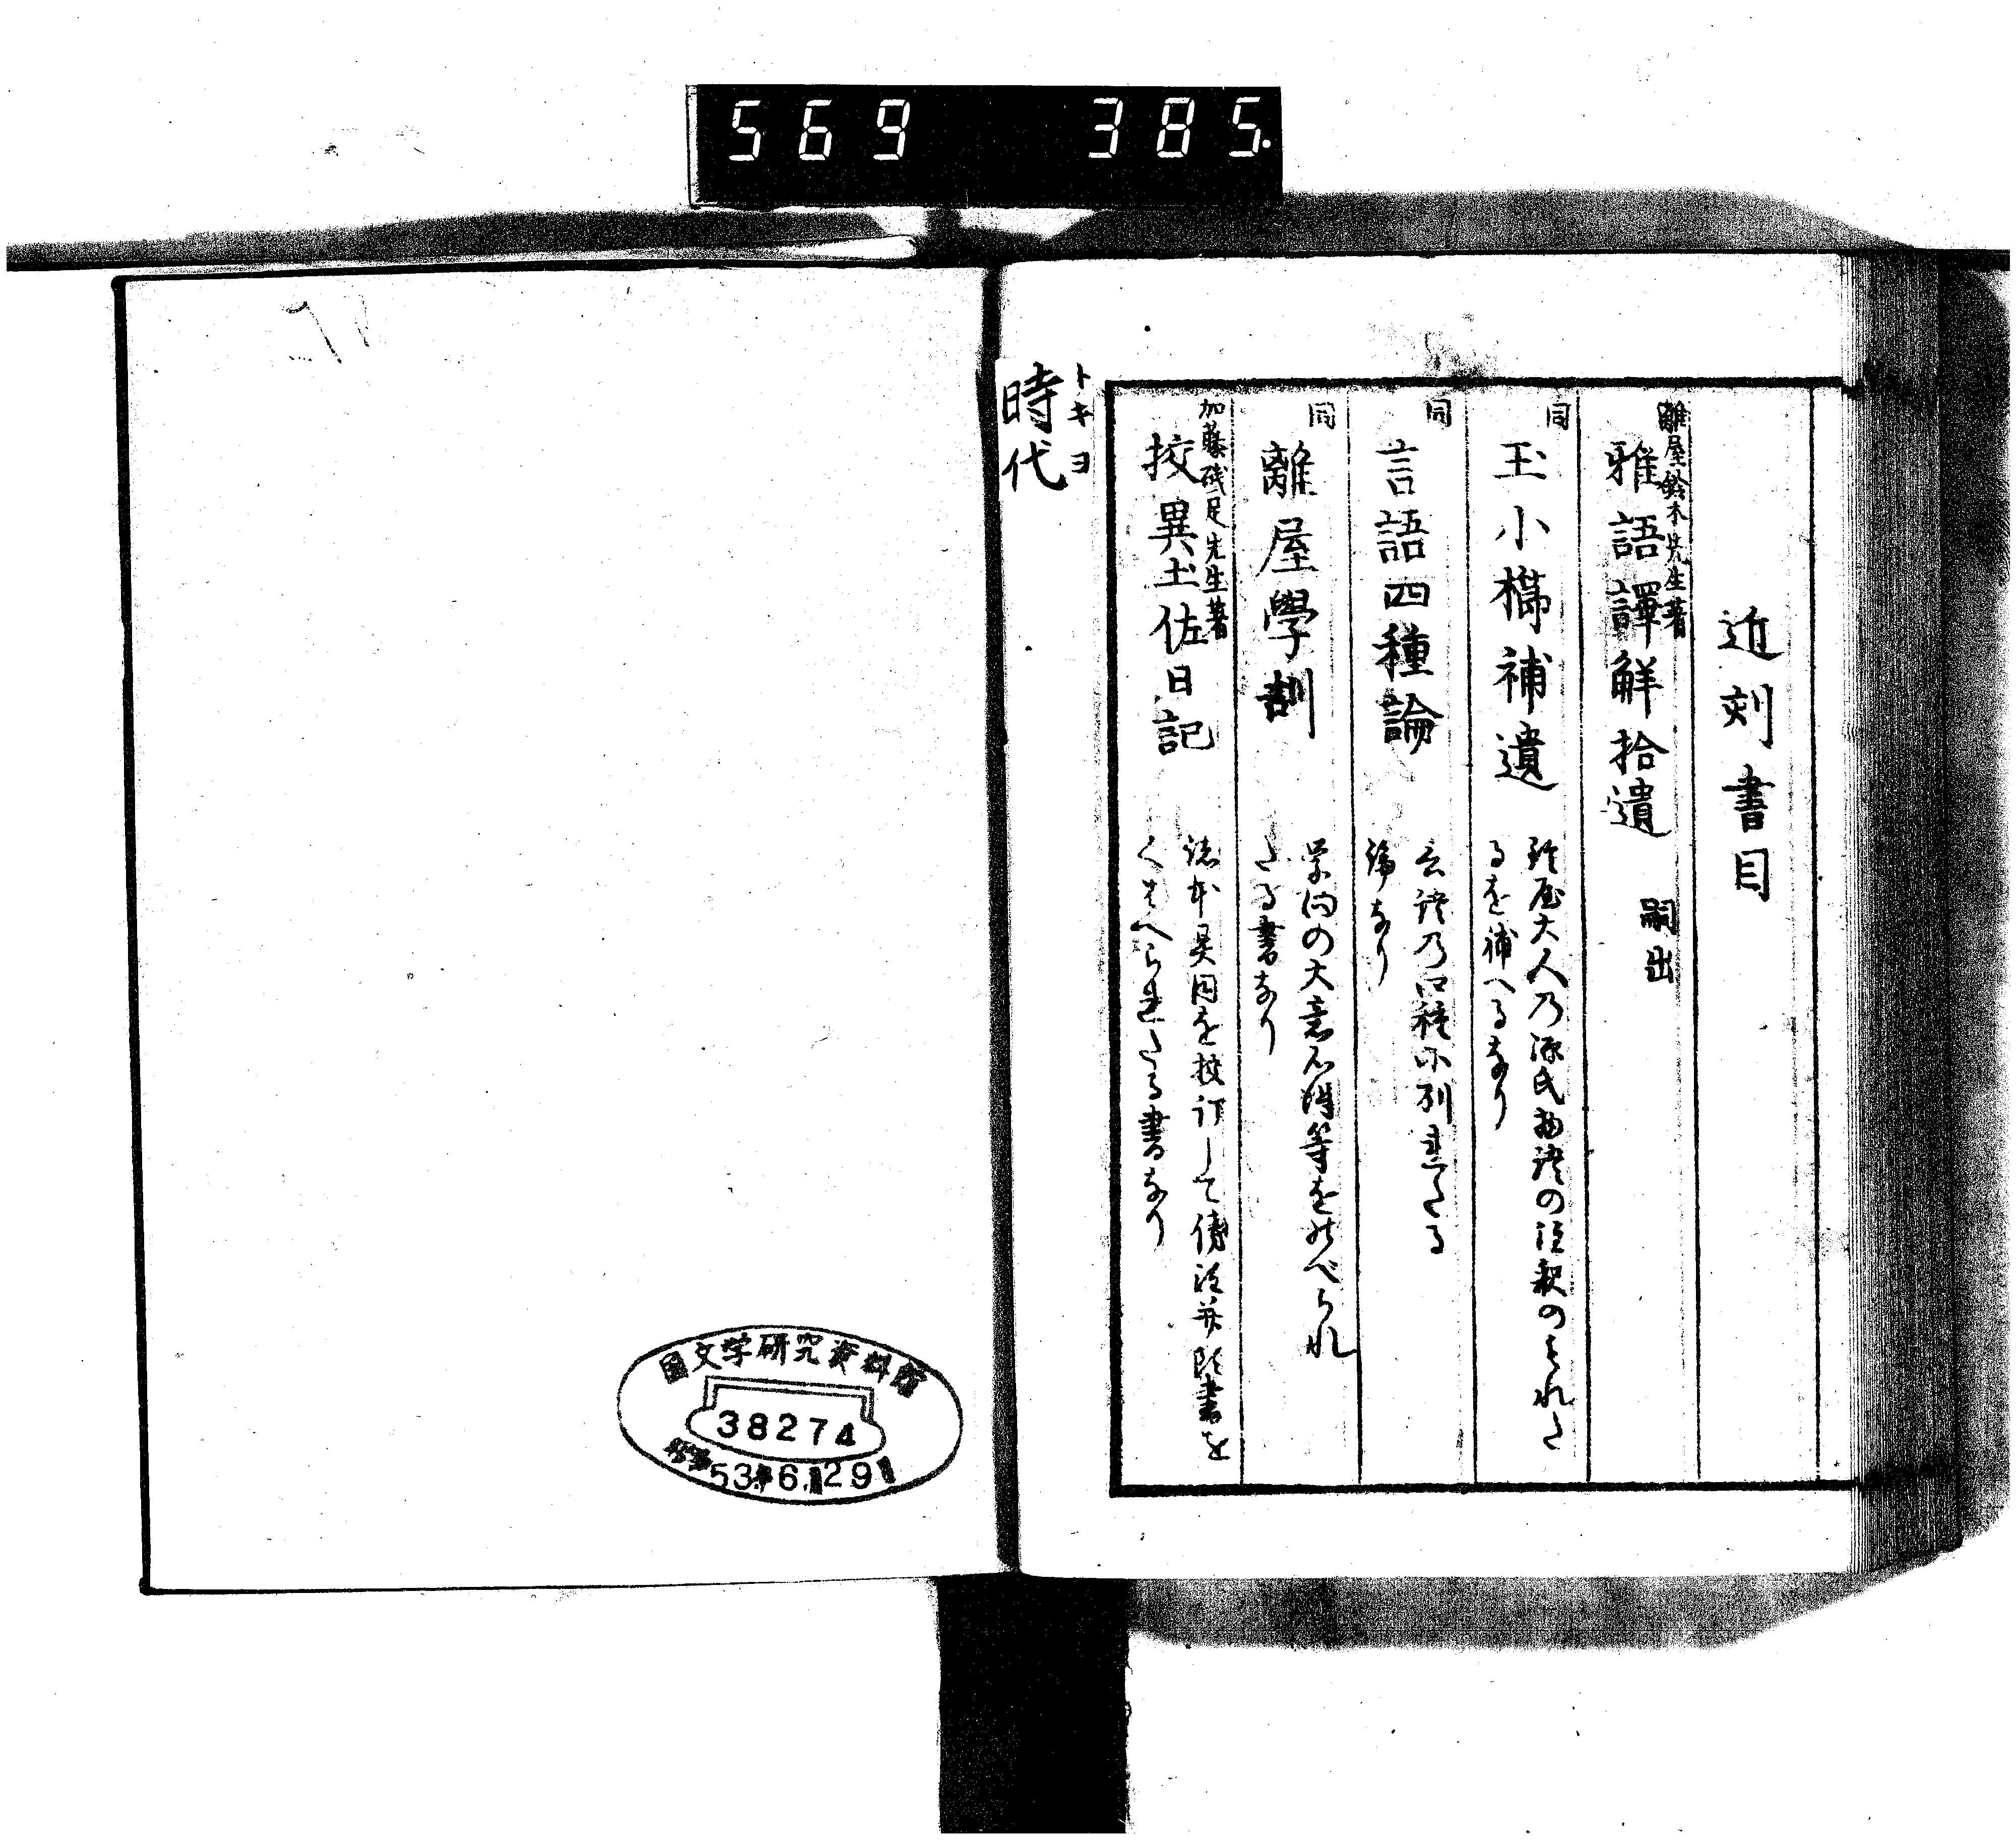 569 385.
近刻書目
離屋鈴木先生著
雅語譯解拾遺 嗣出
同
玉小櫛補遺
鈴屋大人乃源氏物語の注釈のもれた
るを補へるなり
同
言語四種論
言語乃四種に別れたる
論なり
同
離屋學訓
学問の大意心得等をのべられ
たる書なり
加藤磯足先生著
挍異土佐日記
諸本異同を挍訂して傍注并頭書を
くはへられたる書なり
トキヨ
時代
国文学研究資料館
38274
昭和 53. 6. 29